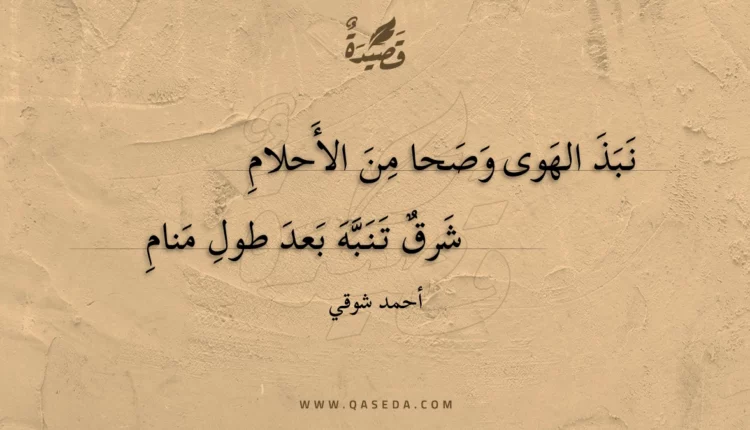 قَصِيْدَةٌ
نَبَذَ الهَوى وَصَحا مِنَ الأَحلامِ
شَرقٌ تَنَبَّهَ بَعدَ طولِ مَنامِ
أحمد شوقي
WWW.QASEDA.COM